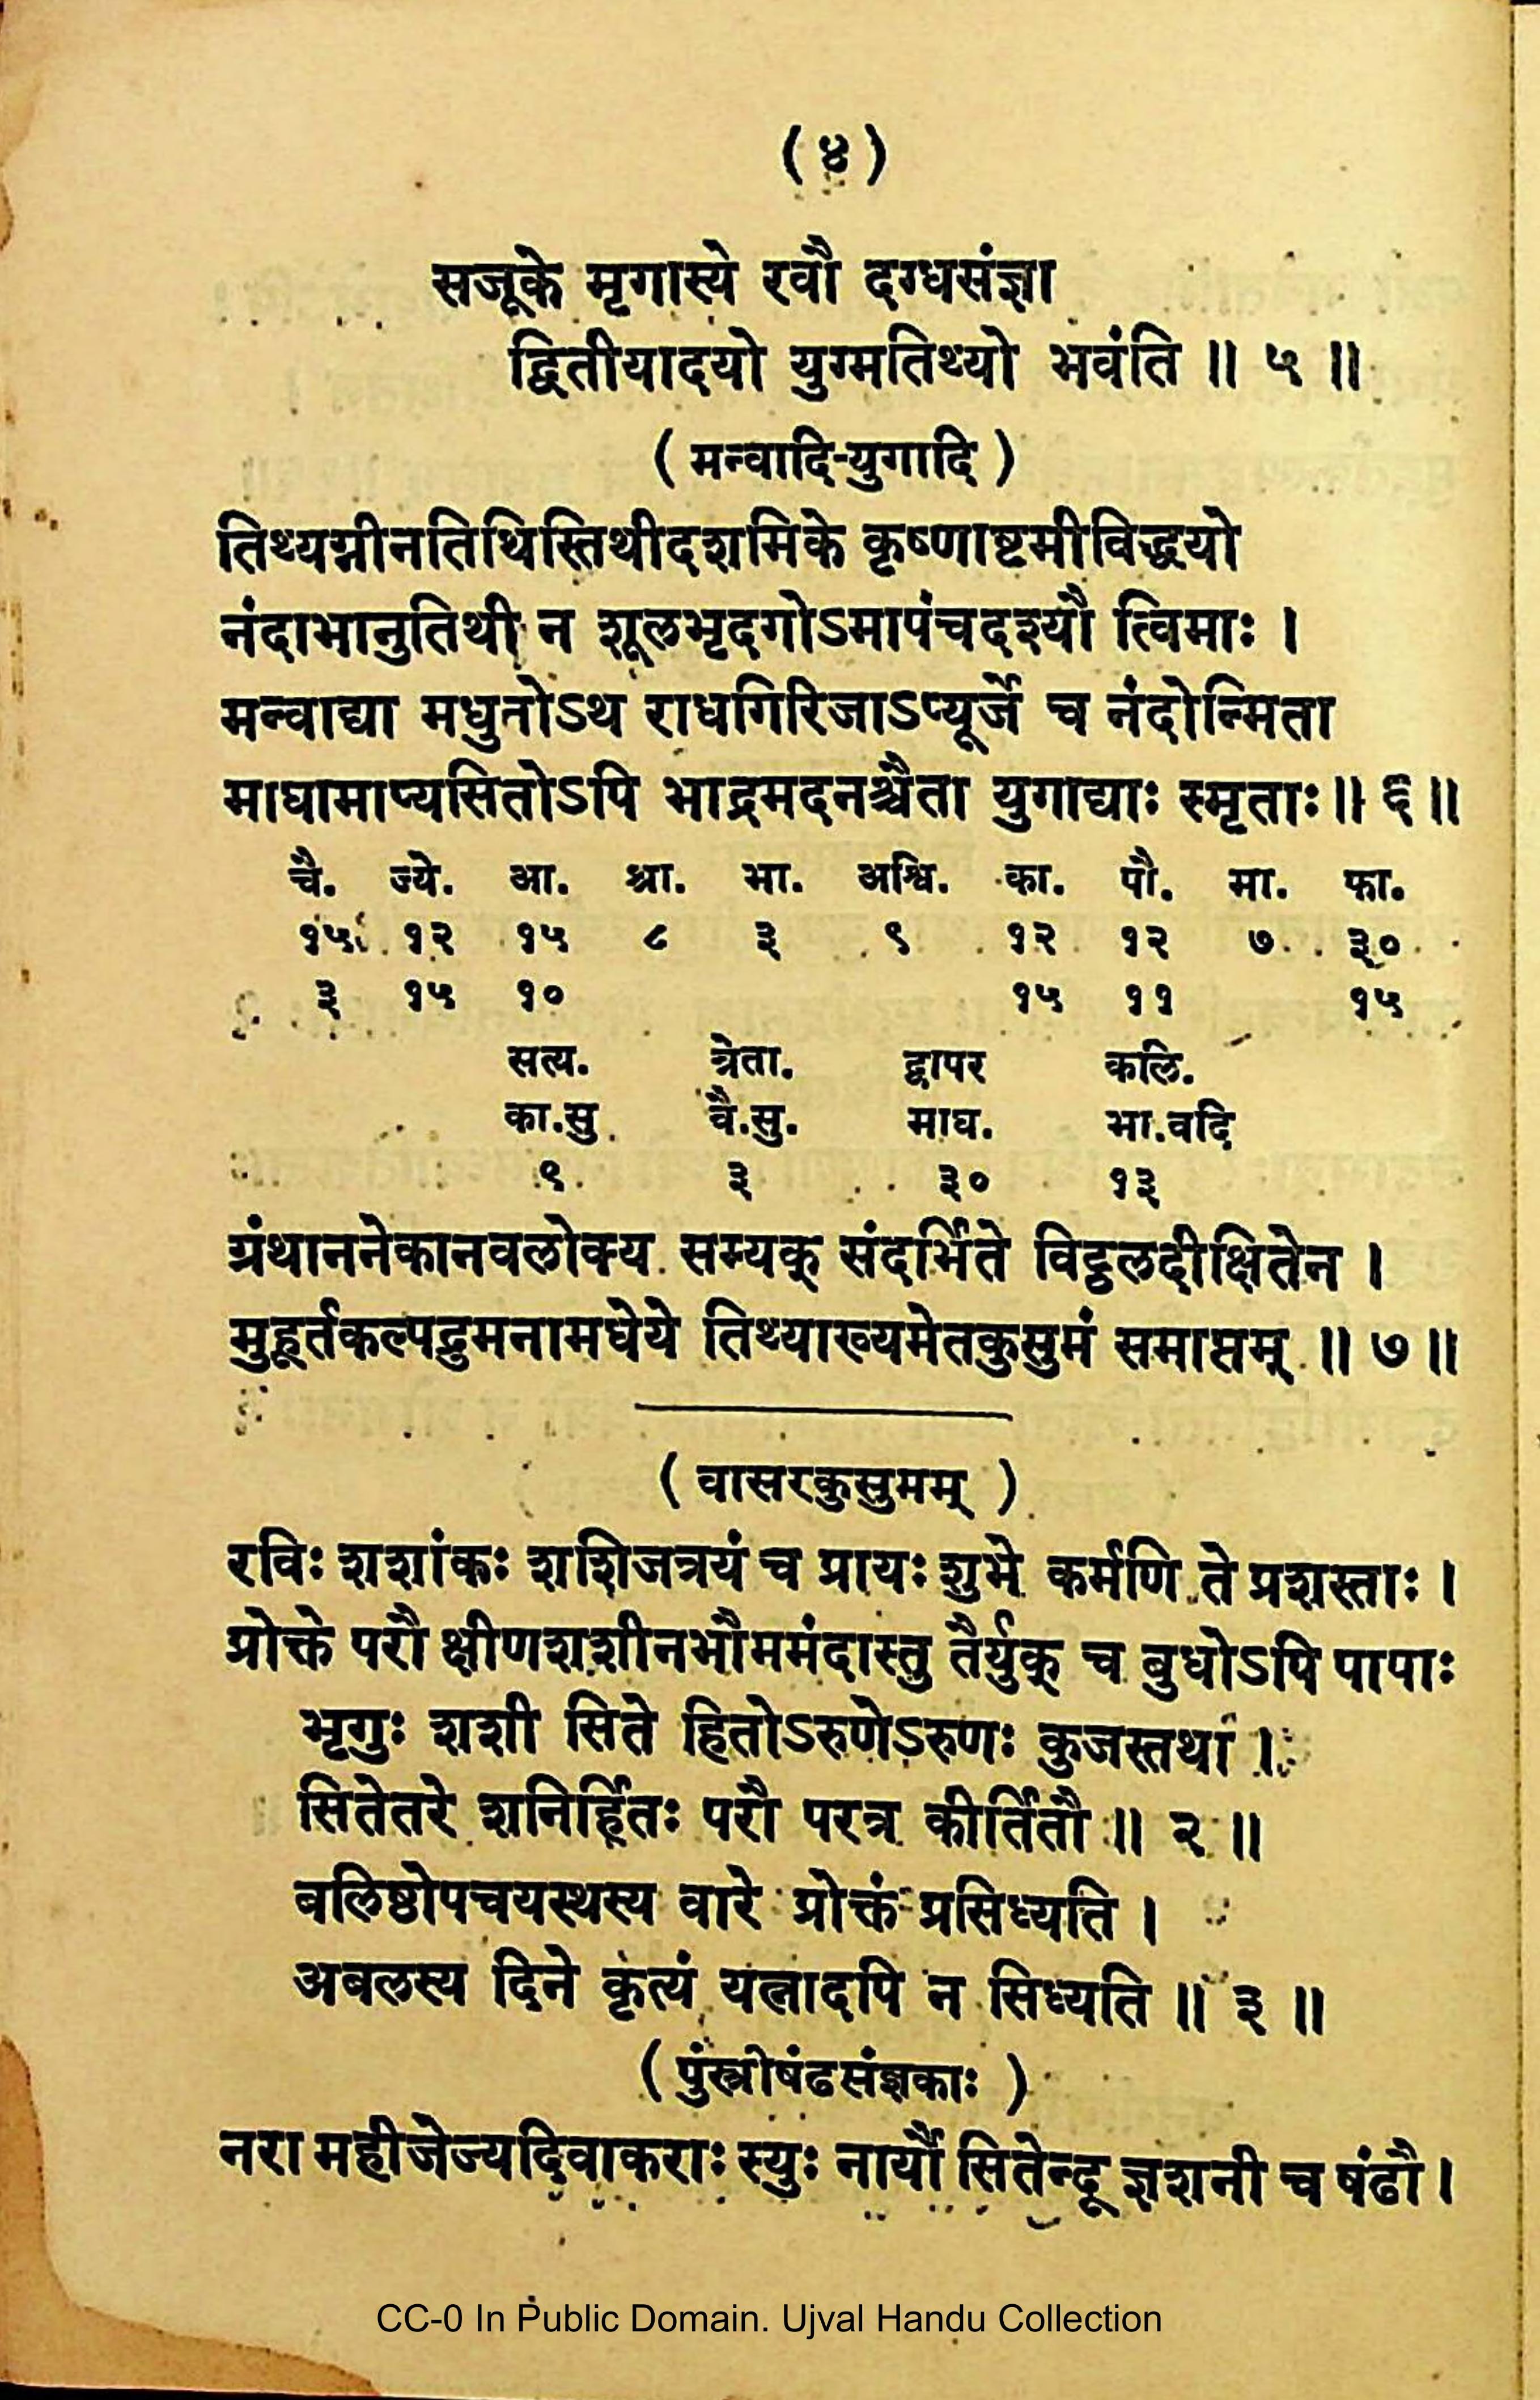 ( ४ )
सजूके मृगास्ये रवौ दग्धसंज्ञा
द्वितीयादयो युग्मतिथ्यो भवंति ॥ ५ ॥
( मन्वादि-युगादि )
तिथ्यग्नीनतिथिस्तिथीदशमिके कृष्णाष्टमीविद्धयो
नंदाभानुतिथी न शूलभृदगोऽमापंचदश्यौ त्विमाः ।
मन्वाद्या मधुनोऽथ राधगिरिजाऽप्यूर्जे च नंदोन्मिता
माघामाप्यसितोऽपि भाद्रमदनश्चैता युगाद्याः स्मृताः ॥ ६ ॥
चै. ज्ये. आ. श्रा. भा. अश्वि. का. पौ. मा. फा.
१५ १२ १५ ८ ३ ९ १२ १२ ७ ३०
३ १५ १० १५ ११ १५
सत्य. त्रेता. द्वापर कलि.
का.सु वै.सु. माघ. भा.वदि
९ ३ ३० १३
ग्रंथाननेकानवलोक्य सम्यक् संदर्भिते विट्ठलदीक्षितेन ।
मुहूर्तकल्पद्रुमनामधेये तिथ्याख्यमेतकुसुमं समाप्तम् ॥ ७ ॥
( वासरकुसुमम् )
रविः शशांकः शशिजत्रयं च प्रायः शुभे कर्मणि ते प्रशस्ताः ।
प्रोक्ते परौ क्षीणशशीनभौममंदास्तु तैर्युक् च बुधोऽपि पापाः
भृगुः शशी सिते हितोऽरुणेऽरुणः कुजस्तथा ।
सितेतरे शनिर्हितः परौ परत्र कीर्तितौ ॥ २ ॥
बलिष्ठोपचयस्थस्य वारे प्रोक्तं प्रसिध्यति ।
अबलस्य दिने कृत्यं यत्नादपि न सिध्यति ॥ ३ ॥
( पुंस्त्रीषंढसंज्ञकाः )
नरा महीजेज्यदिवाकराः स्युः नार्यौ सितेन्दू ज्ञशनी च षंढौ ।
CC-0 In Public Domain. Ujval Handu Collection